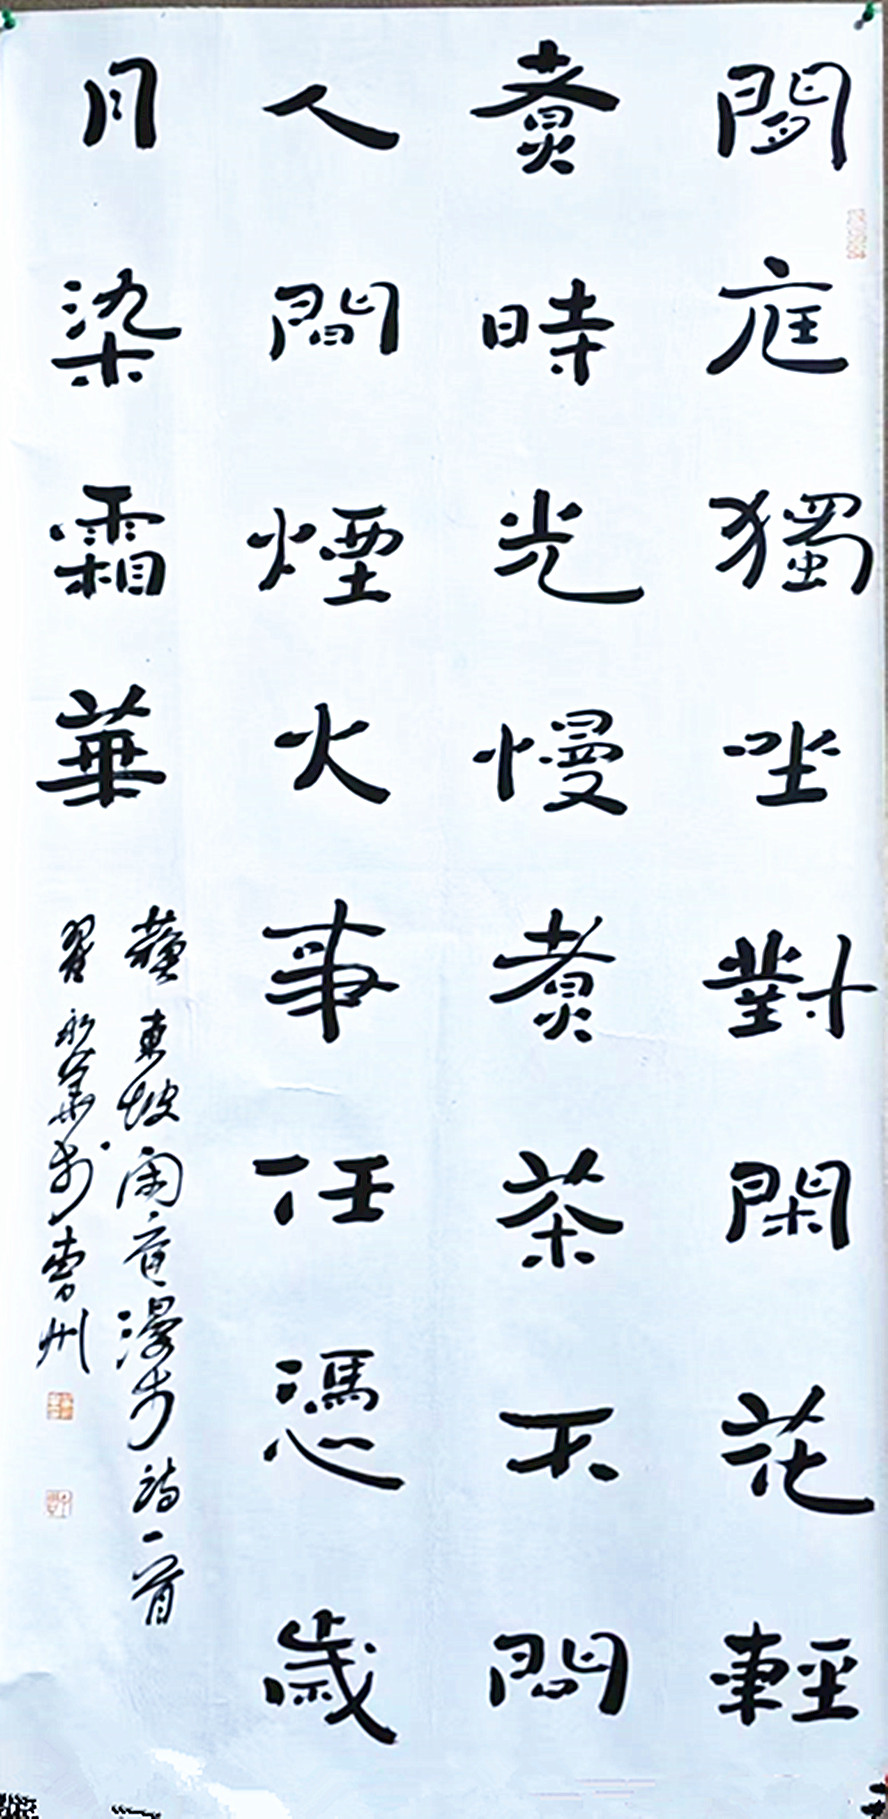 閒庭獨坐對閑花輕
煮時光慢煮茶不問
人間煙火事任憑歲
月染霜華
蘇東坡閑庭漫步詩一首
翟永華於曹州